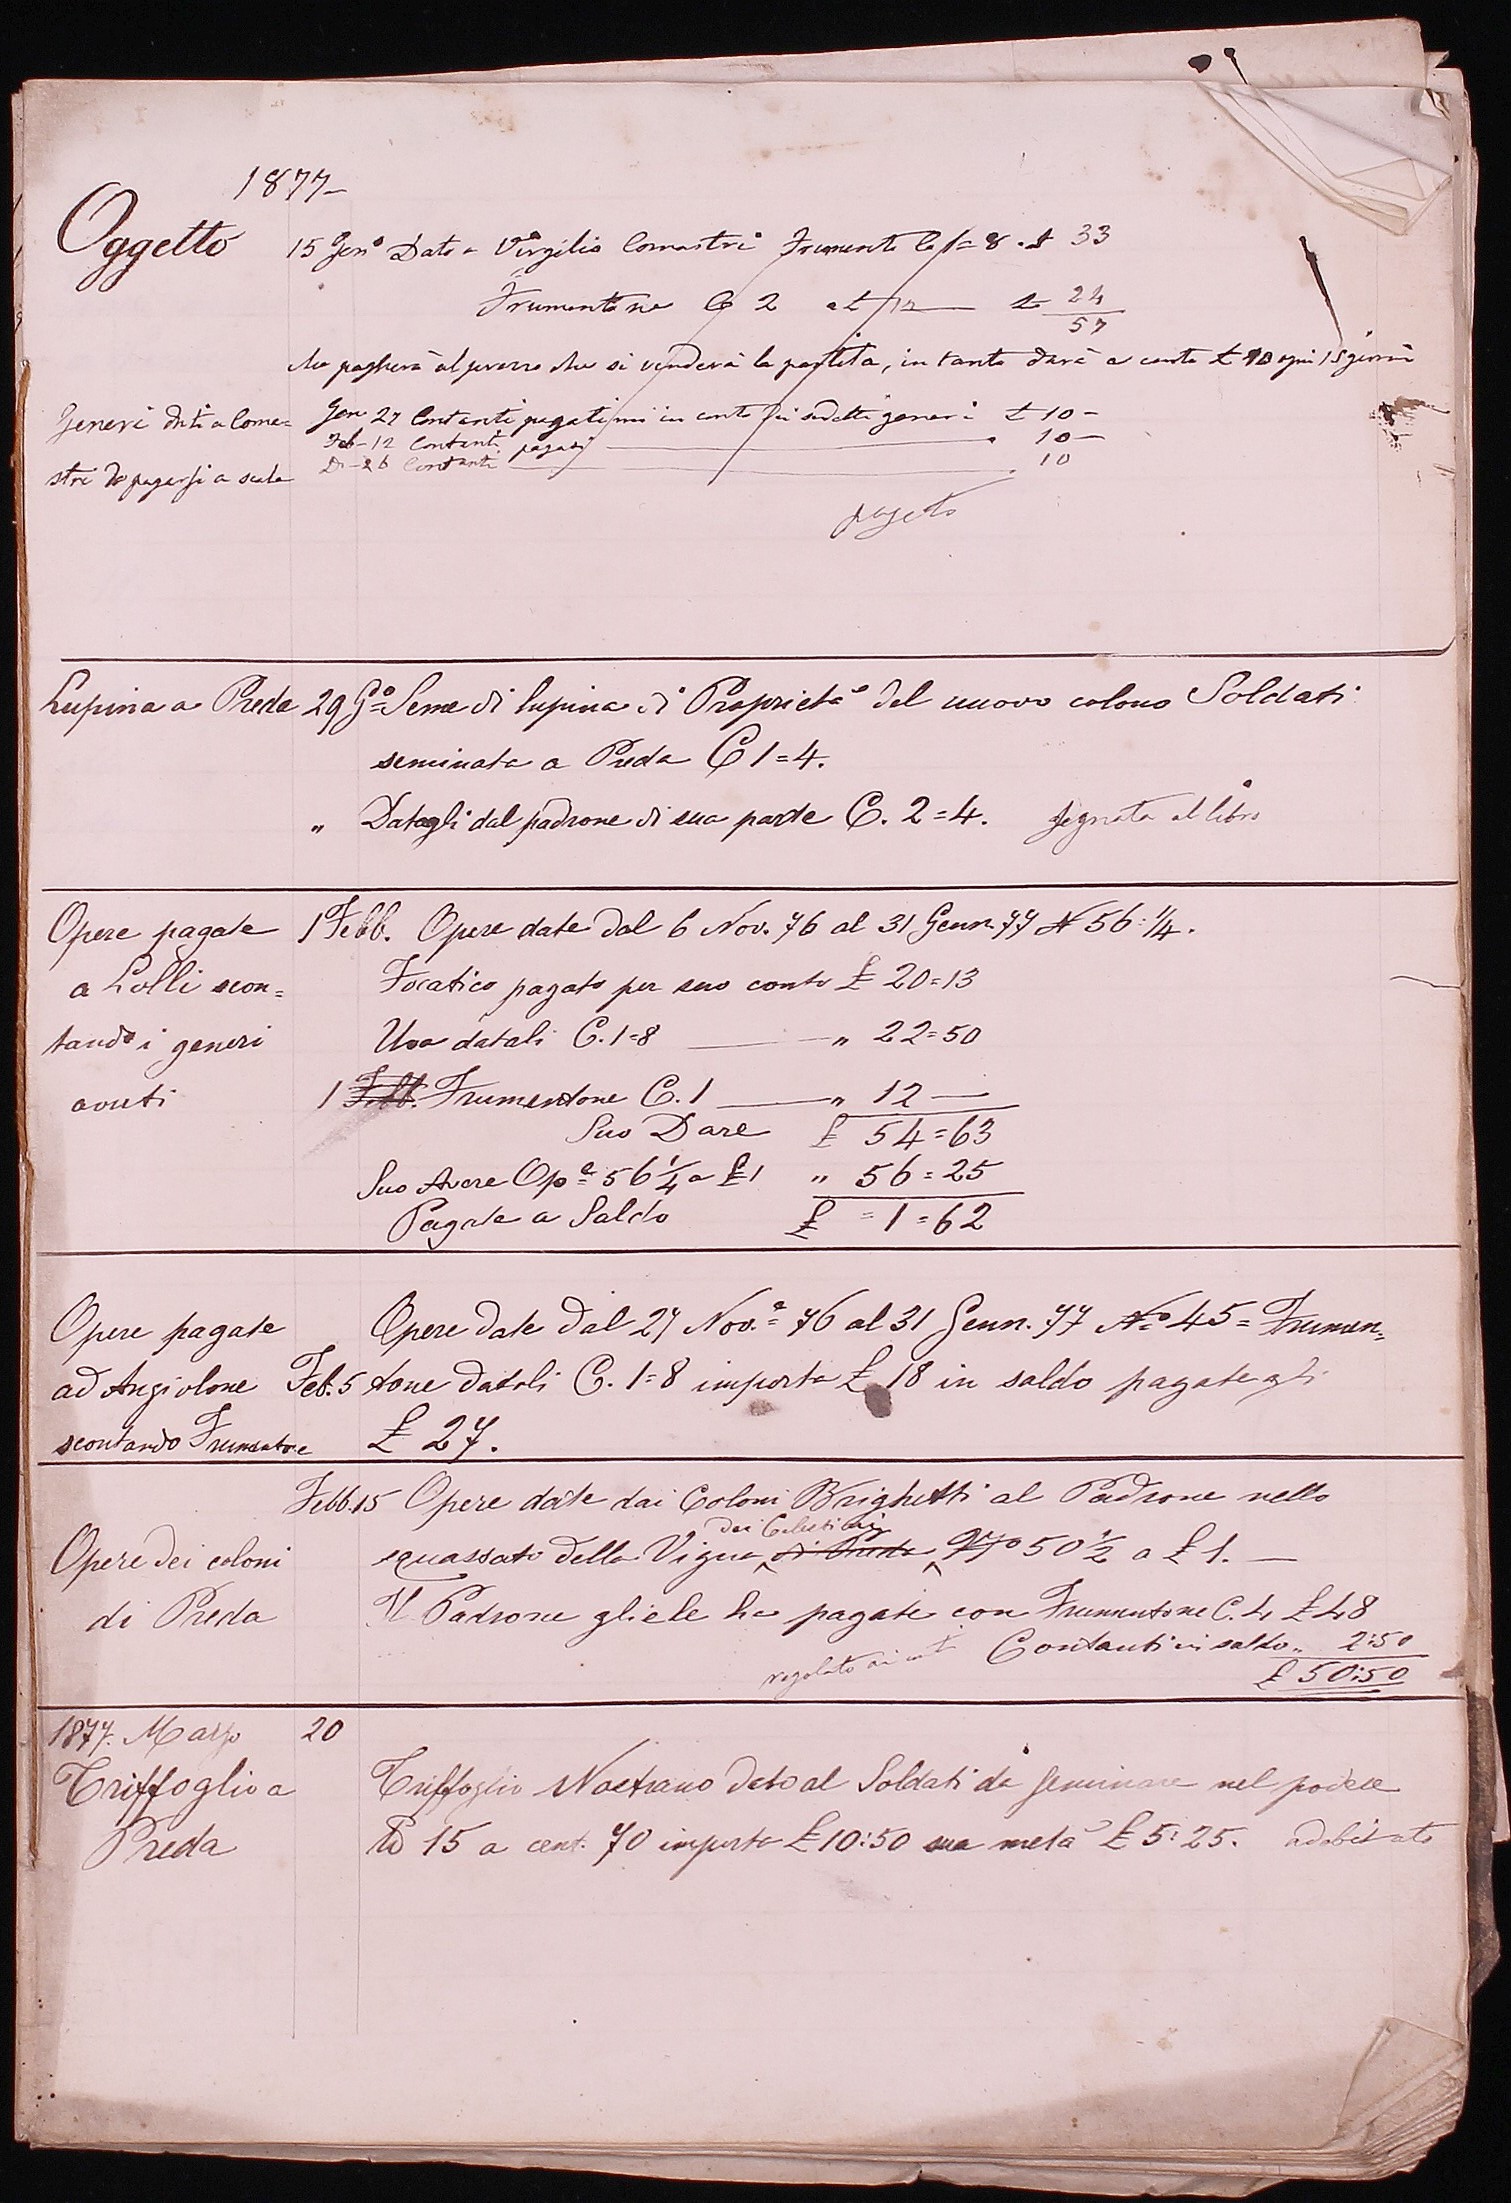 1877-
Oggetto
15 Gen° Dato a Virgilio Comastri Frumento C. 1=8. £ 33
Frumentone C 2 a £ 12 — £ 24
57
che pagherà al prezzo che si venderà la partita, intanto darà a conto £ 10 ogni 15 giorni
Generi dati a Coma=
stri da pagarsi a scala
Gen 27 Contanti pagatimi in conto dei sudetti generi £ 10 -
Feb - 12 Contanti pagati — 10 -
D - 26 Contanti — 10
pagato
Lupina a Preda 29 G° Seme di lupina di Proprietà del nuovo colono Soldati
seminata a Preda C 1=4.
" Datogli dal padrone di sua parte C. 2=4. segnata al libro
Opere pagate
a Lolli scon=
tando i generi
avuti
1 Febb. Opere date dal 6 Nov. 76 al 31 Genn. 77 N 56:1/4.
Focatico pagato per suo conto £ 20=13
Uva datali C. 1=8 — " 22=50
1 Febb. Frumentone C. 1 — " 12 —
Suo Dare £ 54=63
Suo Avere Opᵉ 56 1/4 a £ 1 " 56=25
Pagate a Saldo £ = 1=62
Opere pagate
ad Angiolone
scontando Frumentone
Opere date dal 27 Nov.ᵉ 76 al 31 Genn. 77 N° 45= Frumen=
Feb. 5 tone datoli C. 1=8 importa £ 18 in saldo pagategli
£ 27.
Opere dei coloni
di Preda
Febb. 15 Opere date dai Coloni Brighetti al Padrone nello
dei Celestini
squassato della Vigna di Preda N° 50 1/2 a £ 1. —
Il Padrone gliele ha pagate con Frumentone C. 4 £ 48
regolato ai conti Contanti in saldo " 2:50
£ 50:50
1877. Marzo 20
Triffoglio a
Preda
Triffoglio Nostrano dato al Soldati da seminare nel podere
15 a cent. 70 importa £ 10:50 sua metà £ 5:25. adebitato